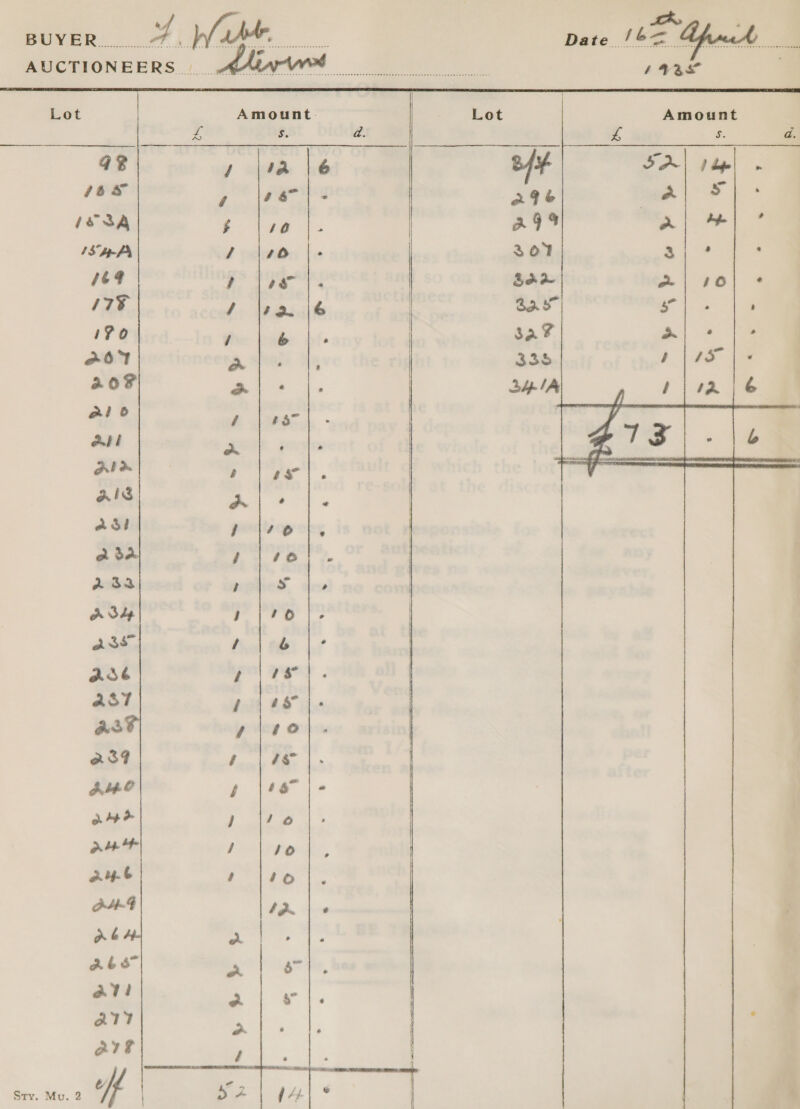 BUYER F. Webb. Date 16th April
AUCTIONEERS Stevens 1935
Lot Amount Lot Amount
£ s. d. £ s. d.
98 1 12 6
105 1 15 -
153A 1 10 -
154A 1 10 .
169 1 15 .
178 1 12 6
190 1 6 .
207 2 . .
208 2 . .
210 1 15 .
211 2 . .
212 1 15 .
213 2 . .
231 1 10 .
232 1 10 .
233 1 5 .
234 1 10 .
235 1 6 .
236 1 15 .
237 1 15 .
238 1 10 .
239 1 15 .
240 1 15 -
242 1 10 .
244 1 10 .
246 1 10 .
249 12 .
264 2 . .
265 2 5 .
271 2 5 .
277 2 . .
278 1 . .
c/f 52 14 .
STY. MU. 2
b/f 52 14 -
296 2 5 .
299 2 4 .
307 3 . .
322 2 10 .
325 5 . .
328 2 . .
335 1 15 .
341A 1 12 6
£73 - 6